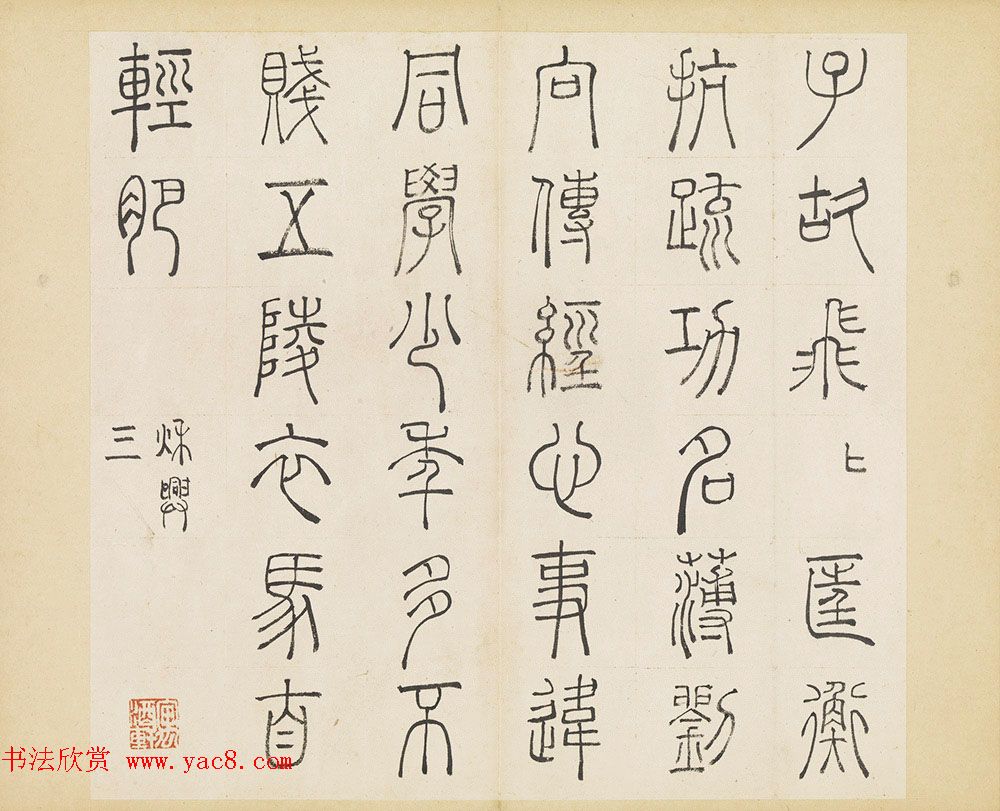 子故飛〻匡衡
抗疏功名薄劉
向傳經心事違
同學少年多不
賤五陵衣馬自
輕肥
秋興
三
书法欣赏 www.yac8.com